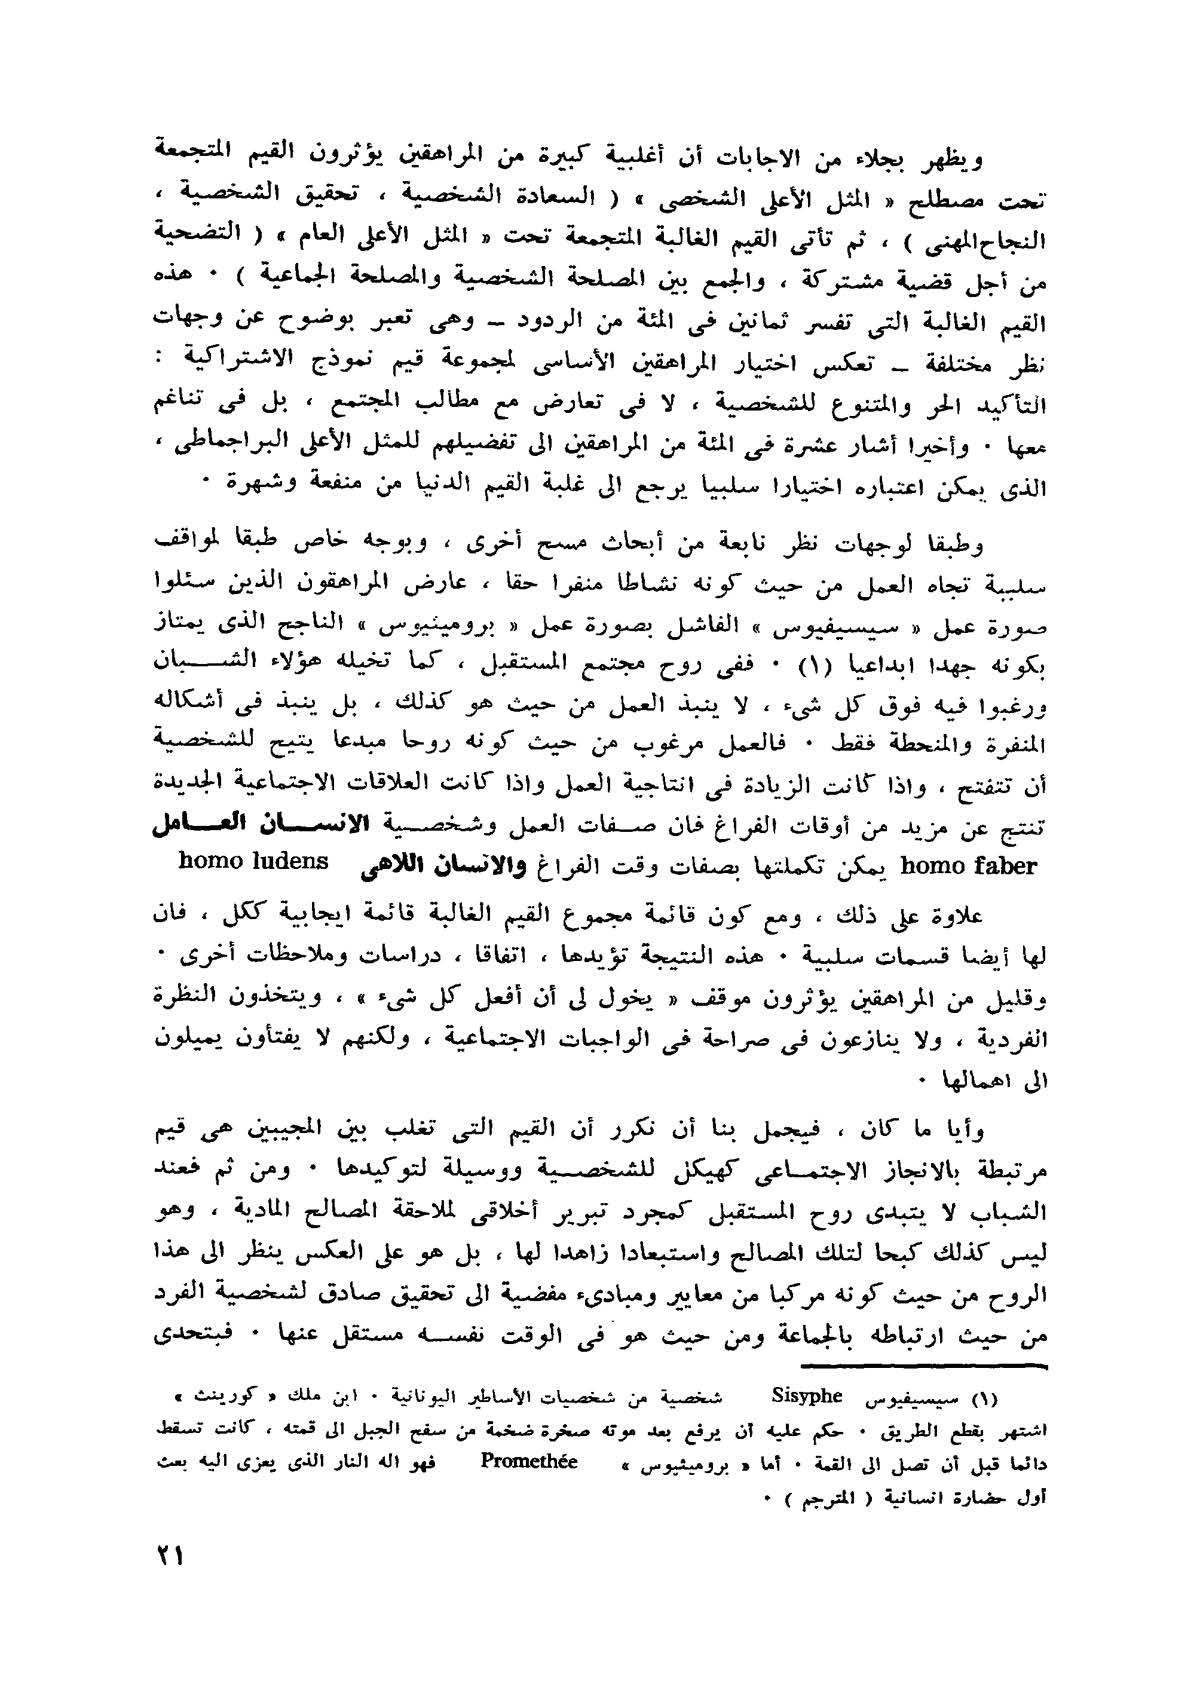 ويظهر بجلاء من الاجابات أن أغلبية كبيرة من المراهقين يؤثرون القيم المتجمعة
تحت مصطلح « المثل الأعلى الشخصى » ( السعادة الشخصية ، تحقيق الشخصية ،
النجاح المهنى ) ، ثم تأتى القيم الغالبة المتجمعة تحت « المثل الأعلى العام » ( التضحية
من أجل قضية مشتركة ، والجمع بين المصلحة الشخصية والمصلحة الجماعية ) ٠ هذه
القيم الغالبة التى تفسر ثمانين فى المئة من الردود – وهى تعبر بوضوح عن وجهات
نظر مختلفة – تعكس اختيار المراهقين الأساسى لمجموعة قيم نموذج الاشتراكية :
التأكيد الحر والمتنوع للشخصية ، لا فى تعارض مع مطالب المجتمع ، بل فى تناغم
معها ٠ وأخيرا أشار عشرة فى المئة من المراهقين الى تفضيلهم للمثل الأعلى البراجماطى ،
الذى يمكن اعتباره اختيارا سلبيا يرجع الى غلبة القيم الدنيا من منفعة وشهرة ٠
وطبقا لوجهات نظر نابعة من أبحاث مسح أخرى ، وبوجه خاص طبقا لمواقف
سلبية تجاه العمل من حيث كونه نشاطا منفرا حقا ، عارض المراهقون الذين سئلوا
صورة عمل « سيسيفيوس » الفاشل بصورة عمل « بروميثيوس » الناجح الذى يمتاز
بكونه جهدا ابداعيا (١) ٠ ففى روح مجتمع المستقبل ، كما تخيله هؤلاء الشبان
ورغبوا فيه فوق كل شىء ، لا ينبذ العمل من حيث هو كذلك ، بل ينبذ فى أشكاله
المنفرة والمنحطة فقط ٠ فالعمل مرغوب من حيث كونه روحا مبدعا يتيح للشخصية
أن تتفتح ، واذا كانت الزيادة فى انتاجية العمل واذا كانت العلاقات الاجتماعية الجديدة
تنتج عن مزيد من أوقات الفراغ فان صفات العمل وشخصية الانسان العامل
homo faber يمكن تكملتها بصفات وقت الفراغ والانسان اللاهى homo ludens
علاوة على ذلك ، ومع كون قائمة مجموع القيم الغالبة قائمة ايجابية ككل ، فان
لها أيضا قسمات سلبية ٠ هذه النتيجة تؤيدها ، اتفاقا ، دراسات وملاحظات أخرى ٠
وقليل من المراهقين يؤثرون موقف « يخول لى أن أفعل كل شىء » ، ويتخذون النظرة
الفردية ، ولا ينازعون فى صراحة فى الواجبات الاجتماعية ، ولكنهم لا يفتأون يميلون
الى اهمالها ٠
وأيا ما كان ، فيجمل بنا أن نكرر أن القيم التى تغلب بين المجيبين هى قيم
مرتبطة بالانجاز الاجتماعى كهيكل للشخصية ووسيلة لتوكيدها ٠ ومن ثم فعند
الشباب لا يتبدى روح المستقبل كمجرد تبرير أخلاقى لملاحقة المصالح المادية ، وهو
ليس كذلك كبحا لتلك المصالح واستبعادا زاهدا لها ، بل هو على العكس ينظر الى هذا
الروح من حيث كونه مركبا من معايير ومبادىء مفضية الى تحقيق صادق لشخصية الفرد
من حيث ارتباطه بالجماعة ومن حيث هو فى الوقت نفسه مستقل عنها ٠ فبتحدى
(١) سيسيفيوس Sisyphe شخصية من شخصيات الأساطير اليونانية ٠ ابن ملك « كورينث »
اشتهر بقطع الطريق ٠ حكم عليه أن يرفع بعد موته صخرة ضخمة من سفح الجبل الى قمته ، كانت تسقط
دائما قبل أن تصل الى القمة ٠ أما « بروميثيوس » Promethée فهو اله النار الذى يعزى اليه بعث
أول حضارة انسانية ( المترجم ) ٠
٢١